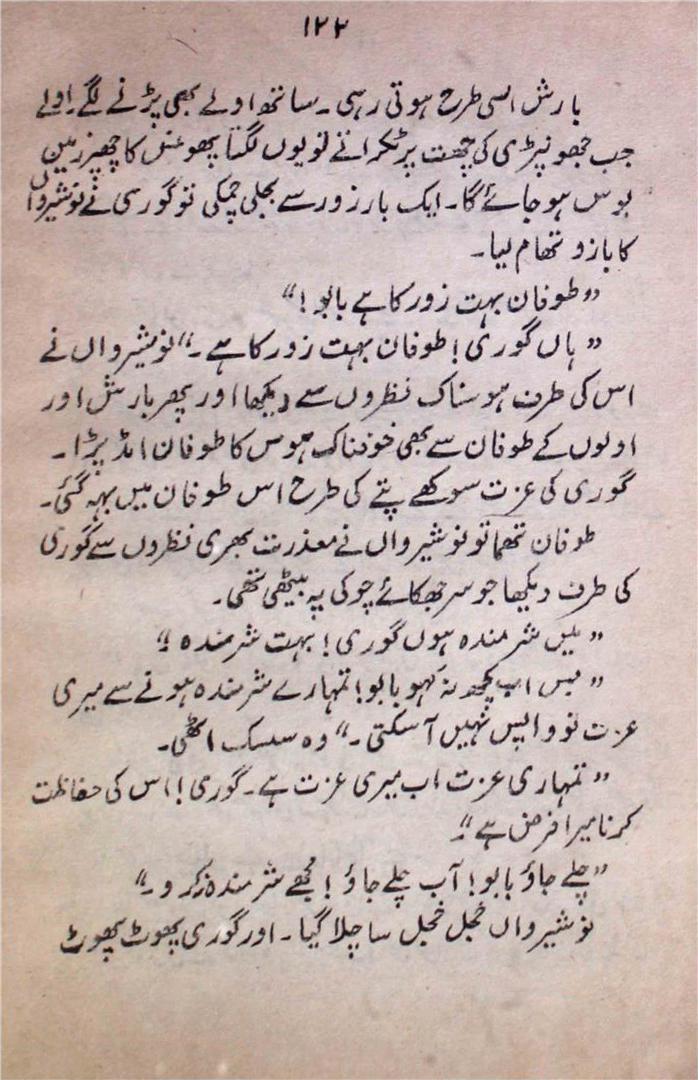 ۱۲۲
بارش اسی طرح ہوتی رہی ۔ ساتھ اولے بھی پڑنے لگے۔ اولے
جب جھونپڑی کی چھت پر ٹکراتے تو یوں لگتا پھونس کا چھپر زمین
بوس ہو جائے گا۔ ایک بار زور سے بجلی چمکی تو گوری نے نوشیرواں
کا بازو تھام لیا۔
”طوفان بہت زور کا ہے بابو !“
”ہاں گوری ! طوفان بہت زور کا ہے ۔“ نوشیرواں نے
اس کی طرف ہوسناک نظروں سے دیکھا اور پھر بارش اور
اولوں کے طوفان سے بھی خوفناک ہوس کا طوفان امڈ پڑا ۔
گوری کی عزت سوکھے پتے کی طرح اس طوفان میں بہہ گئی۔
طوفان تھما تو نوشیرواں نے معذرت بھری نظروں سے گوری
کی طرف دیکھا جو سر جھکائے چوکی پہ بیٹھی تھی۔
”میں شرمندہ ہوں گوری ! بہت شرمندہ !“
”بس اب کچھ نہ کہو بابو ! تمہارے شرمندہ ہونے سے میری
عزت تو واپس نہیں آ سکتی ۔“ وہ سسک اٹھی۔
”تمہاری عزت اب میری عزت ہے ۔ گوری ! اس کی حفاظت
کرنا میرا فرض ہے ۔“
”چلے جاؤ بابو ! آپ چلے جاؤ ! مجھے شرمندہ نہ کرو ۔“
نوشیرواں خجل خجل سا چلا گیا ۔ اور گوری پھوٹ پھوٹ